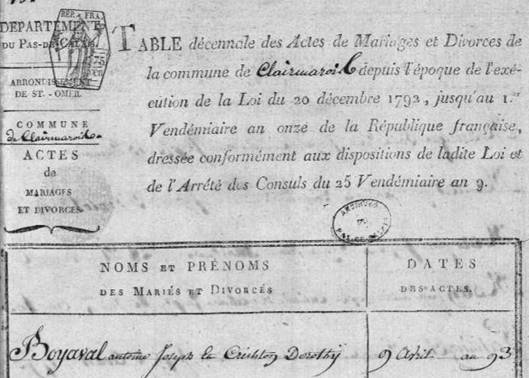 DÉPARTEMENT
DU PAS-DE-CALAIS
RÉP. FRA.
75
ARRONDISSEMENT
DE ST.-OMER.
COMMUNE
de Clairmarais
ACTES
de
MARIAGES
ET DIVORCES
TABLE décennale des Actes de Mariages et Divorces de
la commune de Clairmarais depuis l'époque de l'exé-
cution de la Loi du 20 décembre 1792, jusqu'au 1.er
Vendémiaire an onze de la République française,
dressée conformément aux dispositions de ladite Loi et
de l'Arrêté des Consuls du 25 Vendémiaire an 9.
ARCHIVES
NOMS ET PRÉNOMS
DES MARIÉS ET DIVORCÉS
DATES
DES ACTES.
Boyaval antoine Joseph et Crichton Dorothy
9 Avril au 93